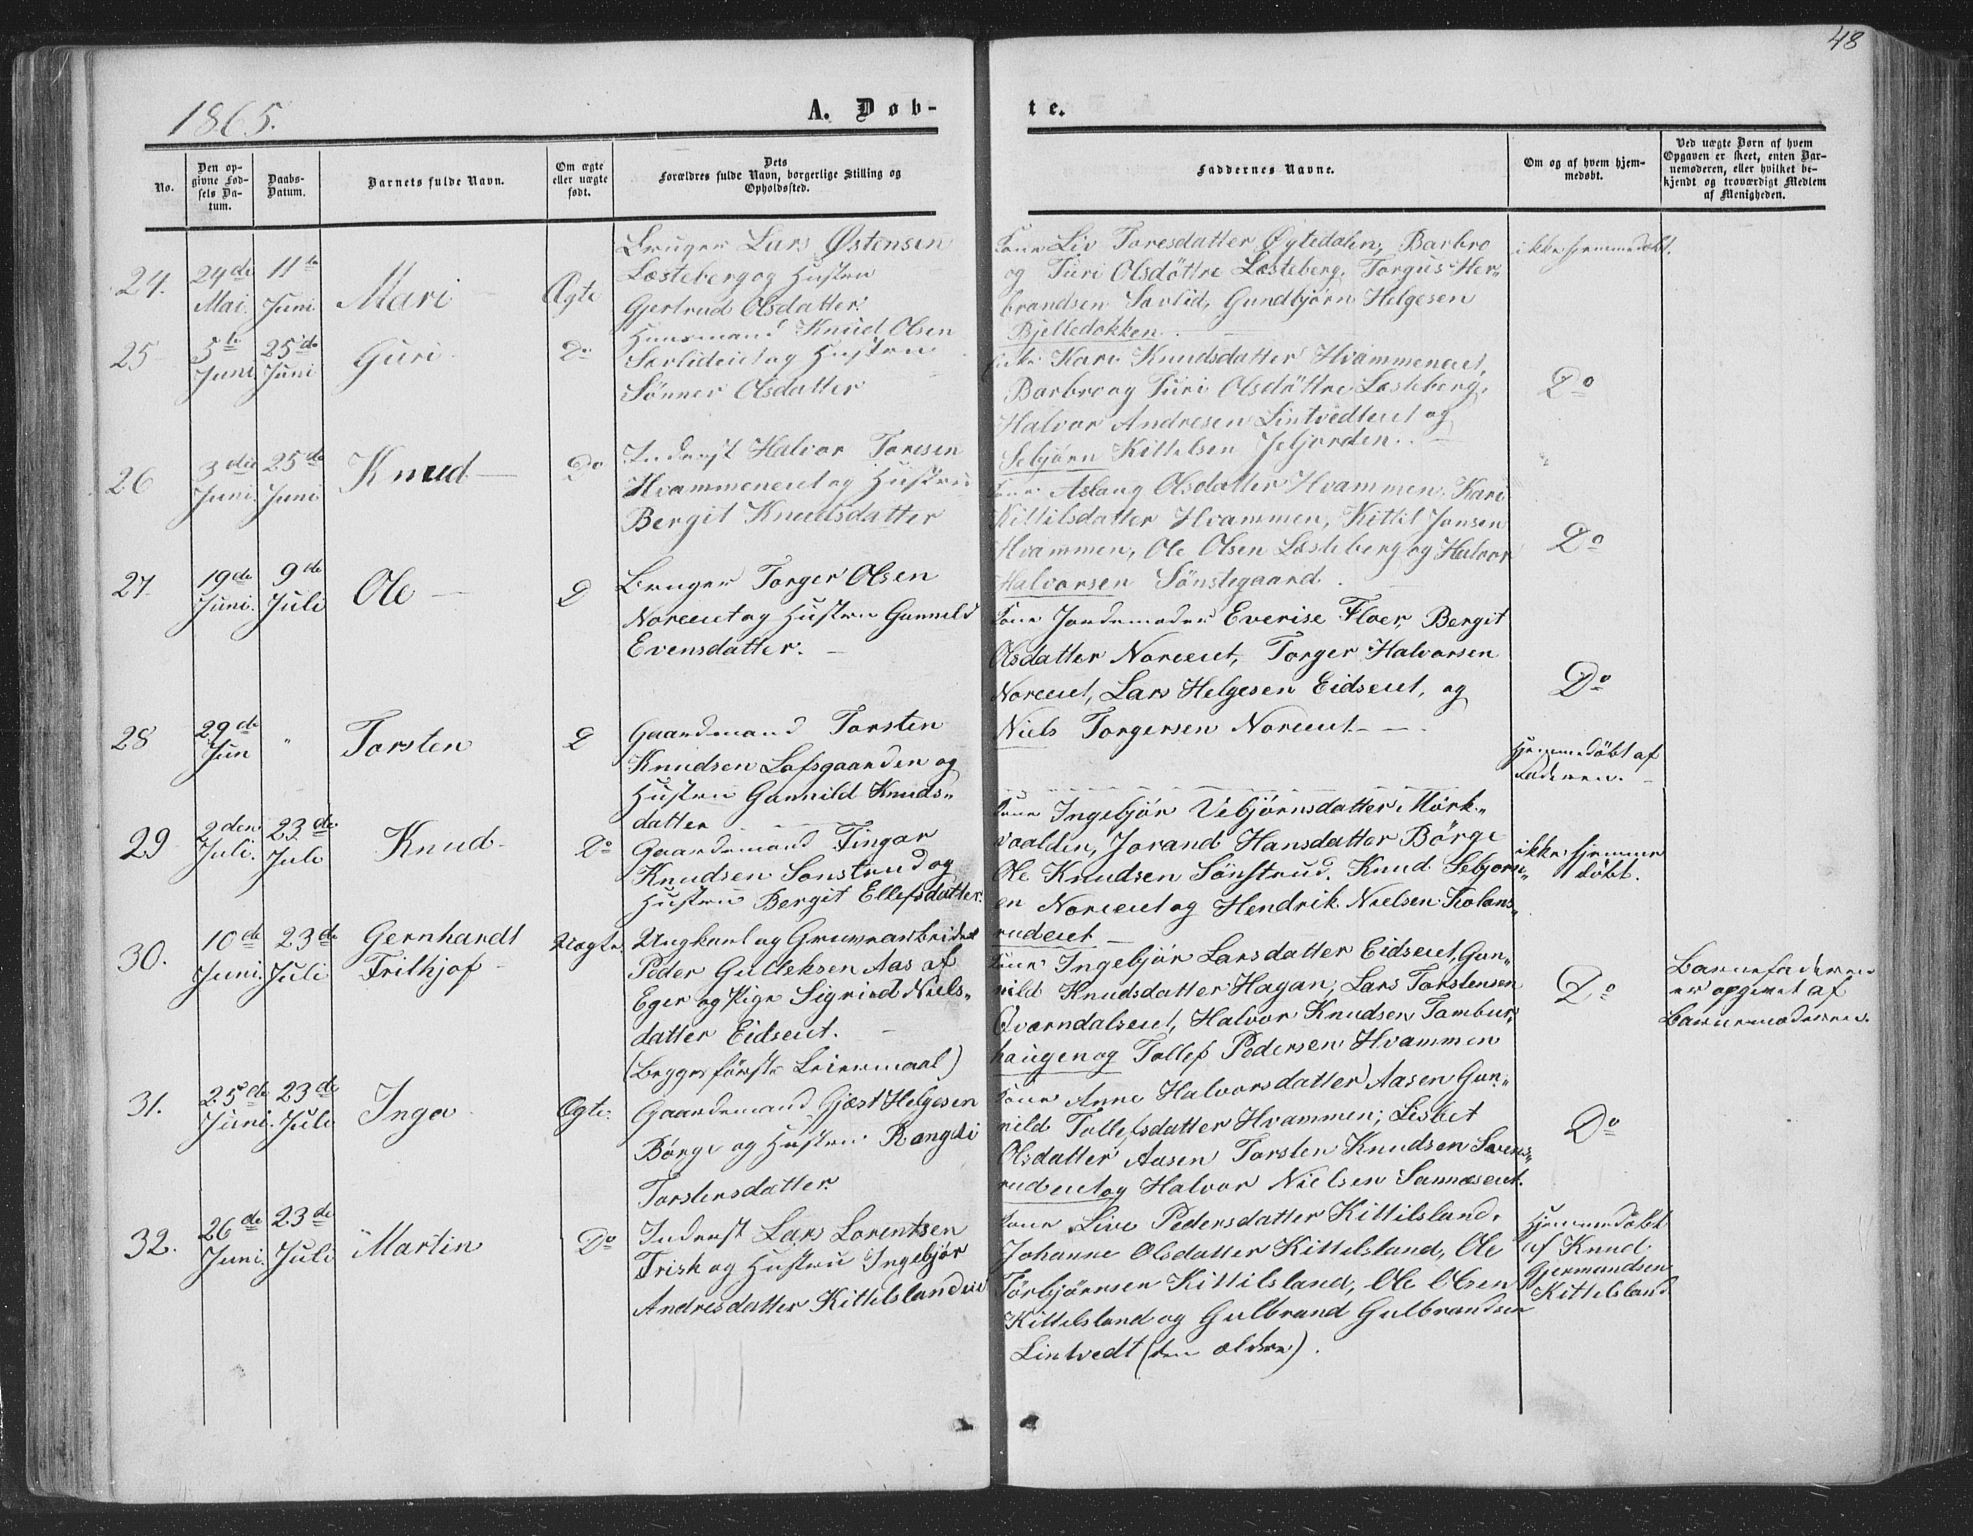 48
1865.
A. Døb-
te.
No.
Den op-
givne Fød-
sels Da-
tum.
Daabs-
Datum.
Barnets fulde Navn.
Om ægte
eller uægte
født.
Dets
Forældres fulde Navn, borgerlige Stilling og
Opholdssted.
Faddernes Navne.
Om og af hvem hjem-
medøbt.
Ved uægte Børn af hvem
Opgaven er skeet, enten Bar-
nemoderen, eller hvilket be-
kjendt og troværdigt Medlem
af Menigheden.
24.
24de
Mai.
11te
Juni
Mari
Ægte
Bruger Lars Østensen
Læsteberg og Hustru
Gjertrud Olsdatter.
Liv Toresdatter Øytedalen, Barbro
og Turi Olsdøttre Læsteberg, Torgus Her-
brandsen Savlid, Gundbjørn Helgesen
Bjelledokken.
ikke hjemmedøbt.
25
5te
Juni
25de
Juni
Guri
Do
Huusmand Knud Olsen
Savlideiet og Hustru
Sønner Olsdatter
Kari Knudsdatter Hvammeneiet,
Barbro og Turi Olsdøttre Læsteberg,
Halvor Andresen Lintvedteiet og
Sebjørn Kittelsen Jeljorden.
Do
26
3die
Juni.
25de
Juni
Knud
Do
Inderst Halvor Toresen
Hvammeneiet og Hustru
Bergit Knudsdatter
Aslaug Olsdatter Hvammen, Kari
Kittilsdatter Hvammen, Kittil Jonsen
Hvammen, Ole Olsen Læsteberg og Halvor
Halvorsen Sønstegaard.
Do
27.
19de
Juni.
9de
Juli
Ole
D
Bruger Torger Olsen
Noreeiet og Hustru Gunnild
Evensdatter.
Jordemoder Everise Floer, Bergit
Olsdatter Noreeiet, Torger Halvorsen
Noreeiet, Lars Helgesen Eidseiet, og
Niels Torgersen Noreeiet
Do
28
29de
Jun
"
Torsten
D
Gaardmand Torsten
Knudsen Lofsgaarden og
Hustru Gunnild Knuds-
datter
Hjemmedøbt af
Faderen.
29
2den
Juli.
23de
Juli
Knud
Do
Gaardmand Fingar
Knudsen Sønstrud og
Hustru Bergit Ellefsdatter.
Ingebjør Vebjørnsdatter Mørk-
voalden, Jorand Hansdatter Børge
Ole Knudsen Sønstrud, Knud Sebjørns-
en Noreeiet og Hendrik Nielsen Kolans-
rudeiet
ikke hjemme
døbt.
30.
10de
Juni.
23de
Juli
Gernhardt
Frithjof
Uægte.
Ungkarl og Grubearbeider
Peder Gulleksen Aas af
Eger og Pige Sigrid Niels-
datter Eidseiet.
(Begges første Leiermaal)
Ingebjør Larsdatter Eidseiet, Gun-
nild Knudsdatter Hagan, Lars Torstensen
Qværndalseiet, Halvor Knudsen Tambur-
haugen og Tollef Pedersen Hvammen
Do
Barnefaderen
er opgivet af
Barnemoderen.
31.
25de
Juni.
23de
Juli.
Inga
Ægte.
Gaardmand Gjest Helgesen
Børge og Hustru Rangdi
Torstensdatter.
Anne Halvorsdatter Aasen Gun-
nild Tollefsdatter Hvammen, Lisbet
Olsdatter Aasen Torsten Knudsen Svens-
rudeiet og Halvor Nielsen Sannæseiet.
Do
32.
26de
Juni.
23de
Juli
Martin
Do
Inderst Lars Lorentsen
Frisk og Hustru Ingebjør
Andresdatter Kittelslandeie
Live Pedersdatter Kittilsland.
Johanne Olsdatter Kittelsland, Ole
Torbjørnsen Kittilsland, Ole Olsen
Kittelsland og Gulbrand Gulbrandsen
Lintvedt (den ældre).
Hjemmedøbt
af Knud
Gjermundsen
Kittelsland